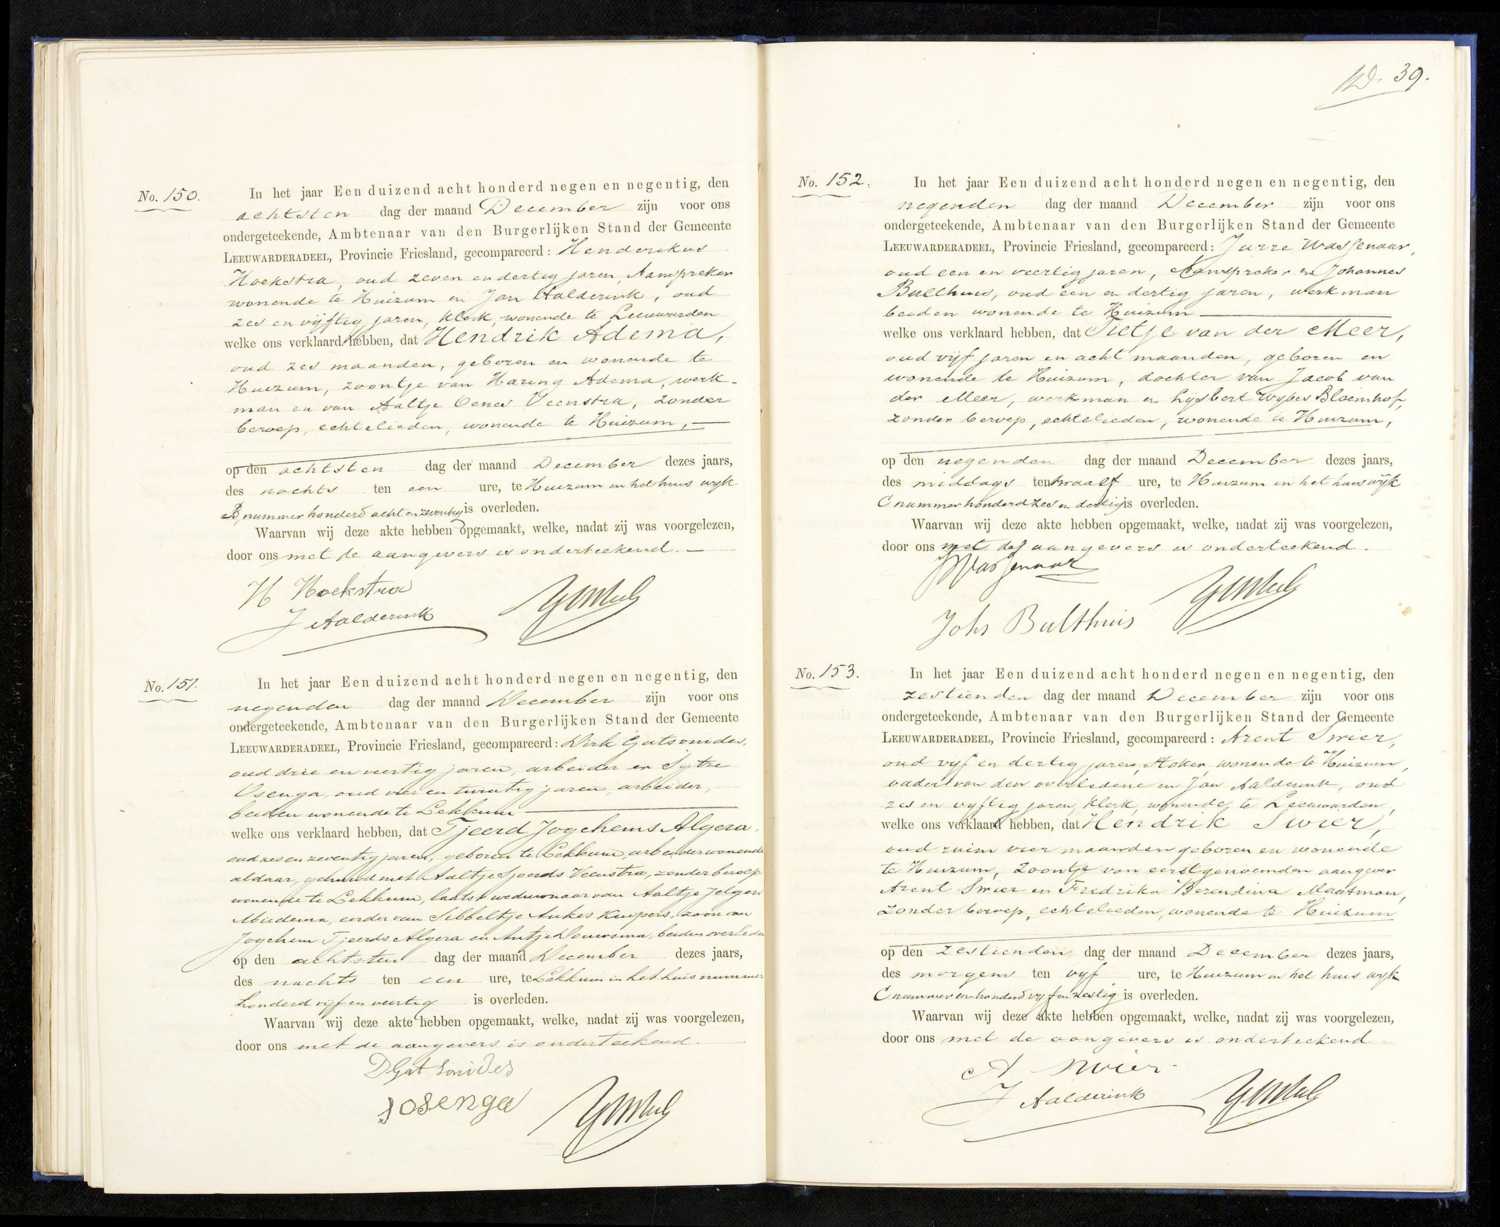 39.
No. 150.
In het jaar Een duizend acht honderd negen en negentig, den
achtsten dag der maand December zijn voor ons
ondergeteekende, Ambtenaar van den Burgerlijken Stand der Gemeente
LEEUWARDERADEEL, Provincie Friesland, gecompareerd: Henderikus
Hoekstra, oud zeven en dertig jaren, Aanspreker
wonende te Huizum en Jan Aalderink, oud
zes en vijftig jaren, klerk, wonende te Leeuwarden
welke ons verklaard hebben, dat Hendrik Adema,
oud zes maanden, geboren en wonende te
Huizum, zoontje van Haring Adema, werk-
man en van Aaltje Oenes Veenstra, zonder
beroep, echtelieden, wonende te Huizum,
op den achtsten dag der maand December dezes jaars,
des nachts ten een ure, te Huizum in het huis wijk
B nummer honderd acht en twintig is overleden.
Waarvan wij deze akte hebben opgemaakt, welke, nadat zij was voorgelezen,
door ons met de aangevers is onderteekend.
H Hoekstra
J Aalderink
No. 151.
In het jaar Een duizend acht honderd negen en negentig, den
negenden dag der maand December zijn voor ons
ondergeteekende, Ambtenaar van den Burgerlijken Stand der Gemeente
LEEUWARDERADEEL, Provincie Friesland, gecompareerd: Dirk Gatsonides,
oud drie en veertig jaren, arbeider en Sijtze
Osenga, oud vier en twintig jaren, arbeider,
beiden wonende te Lekkum
welke ons verklaard hebben, dat Tjeerd Jogchems Algera,
oud zes en zeventig jaren, geboren te Lekkum, arbeider wonende
aldaar, gehuwd met Aaltje Sjoerds Veenstra, zonder beroep
wonende te Lekkum, laatst weduwnaar van Aaltje Jelgers
Miedema, eerder van Sibbeltje Aukes Kuipers, zoon van
Jogchem Tjeerds Algera en Antje Douwsma, beiden overleden
op den achtsten dag der maand December dezes jaars,
des nachts ten een ure, te Lekkum in het huis nummer
honderd vijf en veertig is overleden.
Waarvan wij deze akte hebben opgemaakt, welke, nadat zij was voorgelezen,
door ons met de aangevers is onderteekend.
D Gatsonides
S Osenga
No. 152.
In het jaar Een duizend acht honderd negen en negentig, den
negenden dag der maand December zijn voor ons
ondergeteekende, Ambtenaar van den Burgerlijken Stand der Gemeente
LEEUWARDERADEEL, Provincie Friesland, gecompareerd: Jurre Wassenaar,
oud een en veertig jaren, Aanspreker en Johannes
Bulthuis, oud een en dertig jaren, werkman
beiden wonende te Huizum
welke ons verklaard hebben, dat Tietje van der Meer,
oud vijf jaren en acht maanden, geboren en
wonende te Huizum, dochter van Jacob van
der Meer, werkman en Lijsbert Wybes Bloemhof,
zonder beroep, echtelieden, wonende te Huizum,
op den negenden dag der maand December dezes jaars,
des middags ten twaalf ure, te Huizum in het huis wijk
C nummer honderd zes en dertig is overleden.
Waarvan wij deze akte hebben opgemaakt, welke, nadat zij was voorgelezen,
door ons met de aangevers is onderteekend.
J Wassenaar
Johs Bulthuis
No. 153.
In het jaar Een duizend acht honderd negen en negentig, den
zestienden dag der maand December zijn voor ons
ondergeteekende, Ambtenaar van den Burgerlijken Stand der Gemeente
LEEUWARDERADEEL, Provincie Friesland, gecompareerd: Arent Swier,
oud vijf en dertig jaren, Stoker, wonende te Huizum,
vader van den overledene en Jan Aalderink, oud
zes en vijftig jaren, klerk, wonende te Leeuwarden,
welke ons verklaard hebben, dat Hendrik Swier,
oud ruim vier maanden geboren en wonende
te Huizum, zoontje van eerstgenoemden aangever
Arent Swier en Fredrika Berendina Maatman,
zonder beroep, echtelieden, wonende te Huizum
op den zestienden dag der maand December dezes jaars,
des morgens ten vijf ure, te Huizum in het huis wijk
C nummer een honderd vijf en zestig is overleden.
Waarvan wij deze akte hebben opgemaakt, welke, nadat zij was voorgelezen,
door ons met de aangevers is onderteekend
A Swier
J Aalderink